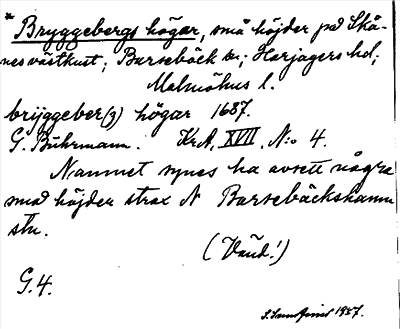 * Bryggebergs högar, små höjder på Skå-
nes västkust; Barsebäck sn; Harjagers hd;
Malmöhus l.
brÿggeber(g) högar 1687.
G. Buhrmann. KrA, XVII, N:o 4.
Namnet synes ha avsett några
små höjder strax N Barsebäckshamn
stn.
(Vänd!)
G. 4.
1957.